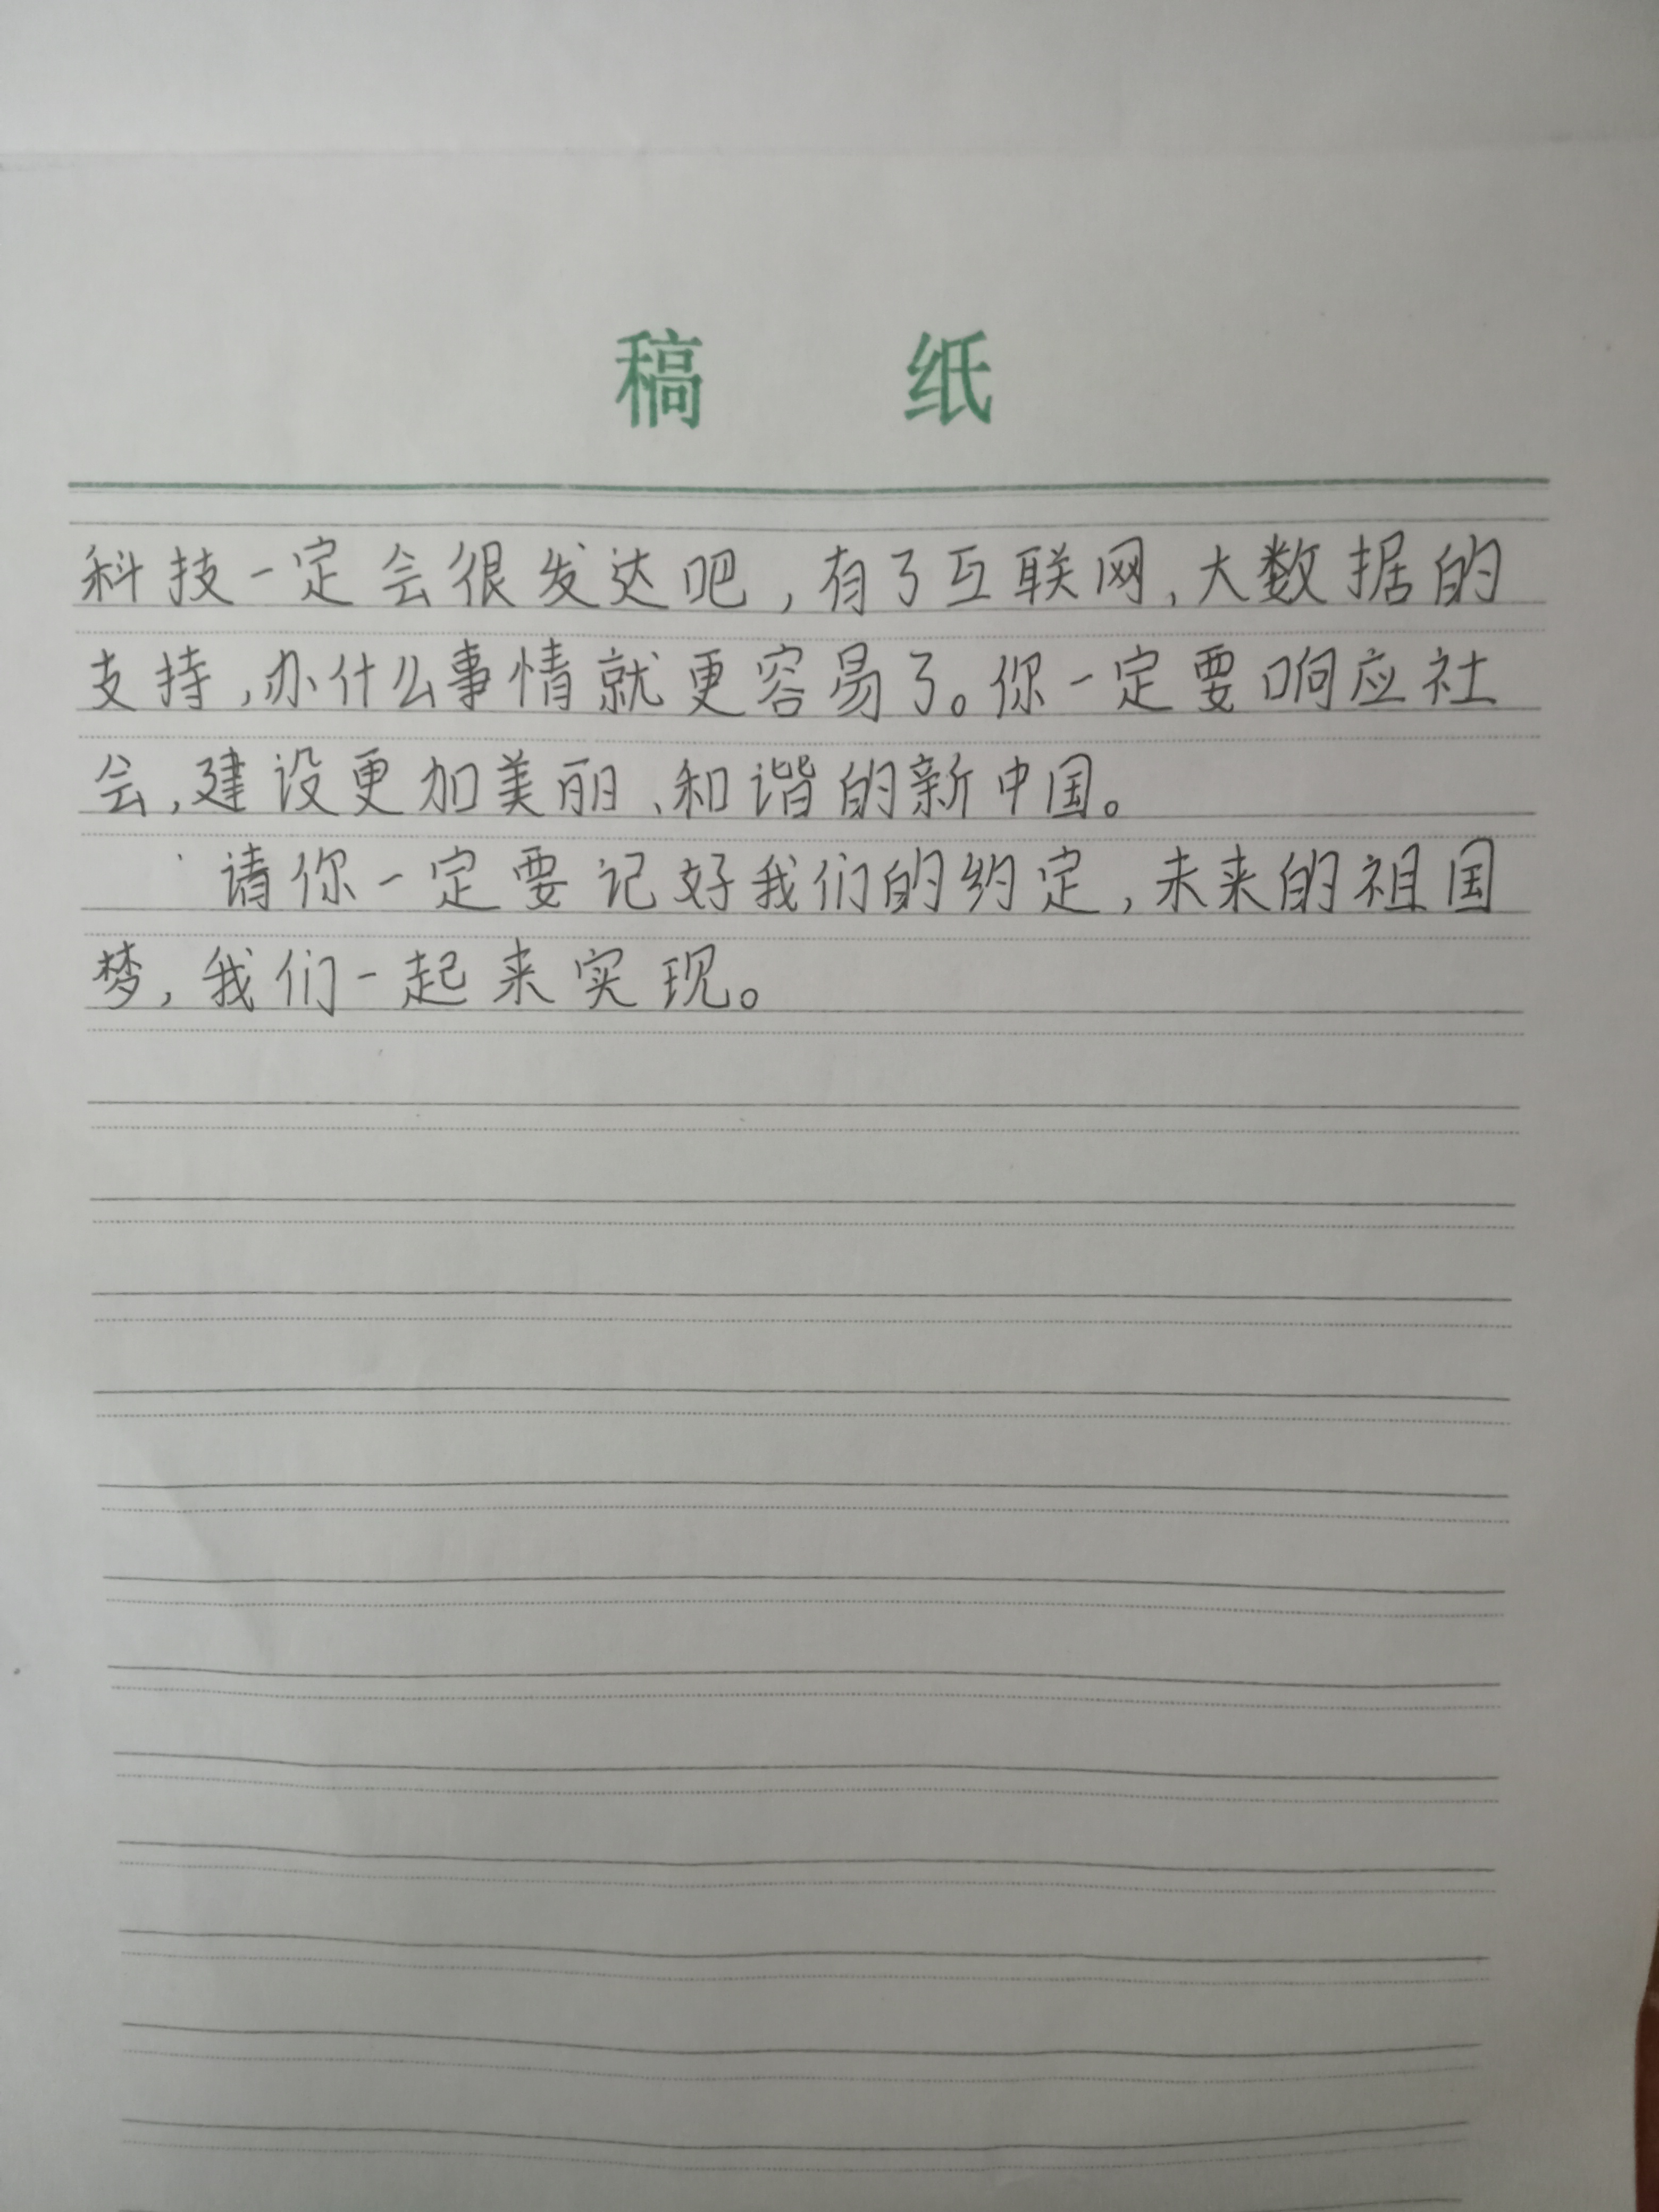 稿 纸
科技一定会很发达吧，有了互联网、大数据的
支持，办什么事情就更容易了。你一定要响应社
会，建设更加美丽、和谐的新中国。
请你一定要记好我们的约定，未来的祖国
梦，我们一起来实现。